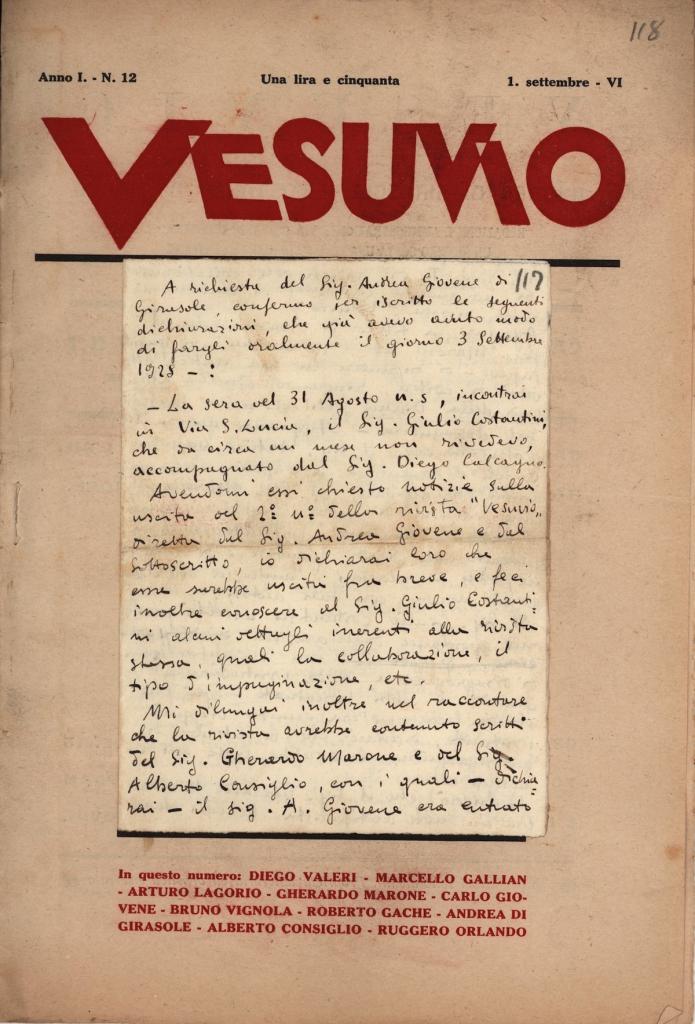 118
Anno I. - N. 12 Una lira e cinquanta 1. settembre - VI
VESUVIO
A richiesta del Sig. Andrea Giovene di 117
Girasole, confermo per iscritto le seguenti
dichiarazioni, che già avevo avuto modo
di fargli oralmente il giorno 3 Settembre
1928 - :
- La sera del 31 Agosto u.s, incontrai
in Via S. Lucia, il Sig. Giulio Costantini,
che da circa un mese non rivedevo,
accompagnato dal Sig. Diego Calcagno.
Avendomi essi chiesto notizie sulla
uscita del 2º nº della rivista "Vesuvio„
diretta dal Sig. Andrea Giovene e dal
sottoscritto, io dichiarai loro che
essa sarebbe uscita fra breve, e feci
inoltre conoscere al Sig. Giulio Costanti-
ni alcuni dettagli inerenti alla rivista
stessa, quali la collaborazione, il
tipo d'impaginazione, etc.
Mi dilungai inoltre nel raccontare
che la rivista avrebbe contenuto scritti
del Sig. Gherardo Marone e del Sig.
Alberto Consiglio, con i quali - dichia-
rai - il sig. A. Giovene era entrato
In questo numero: DIEGO VALERI - MARCELLO GALLIAN
- ARTURO LAGORIO - GHERARDO MARONE - CARLO GIO-
VENE - BRUNO VIGNOLA - ROBERTO GACHE - ANDREA DI
GIRASOLE - ALBERTO CONSIGLIO - RUGGERO ORLANDO